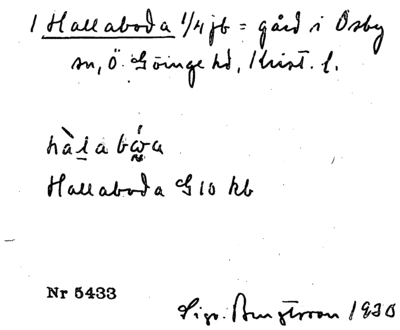 1 Hallaboda 1/4 jb = gård i Osby
sn, Ö. Göinge hd, Krist. l.
hàlabǻra
Hallaboda G 10 kb
Nr 5433
Sigv. Bengtsson 1930